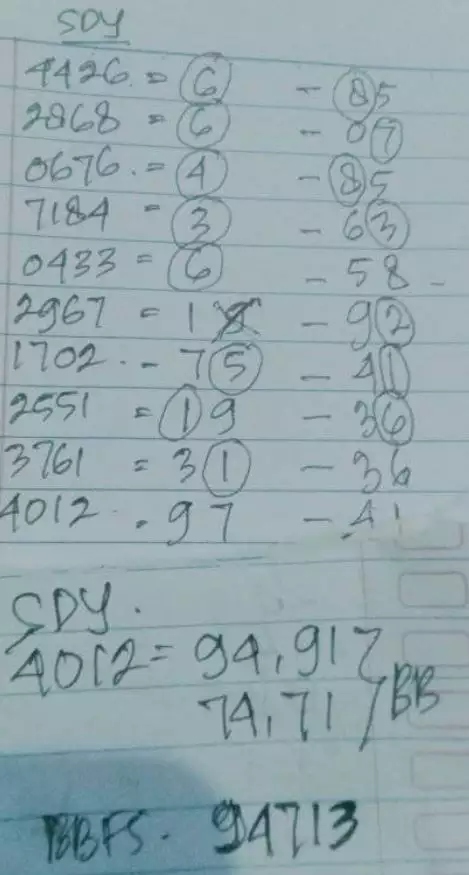 SDY
4426 = 6 - 85
2868 = 6 - 07
0676. = 4 - 85
7184 = 3 - 63
0433 = 6 - 58 -
2967 = 18 - 92
1702. - 75 - 41
2551 = 19 - 36
3761 = 31 - 36
4012 . 97 - 41
SDY.
4012 = 94, 917
74, 717 BB
BBFS. 94713